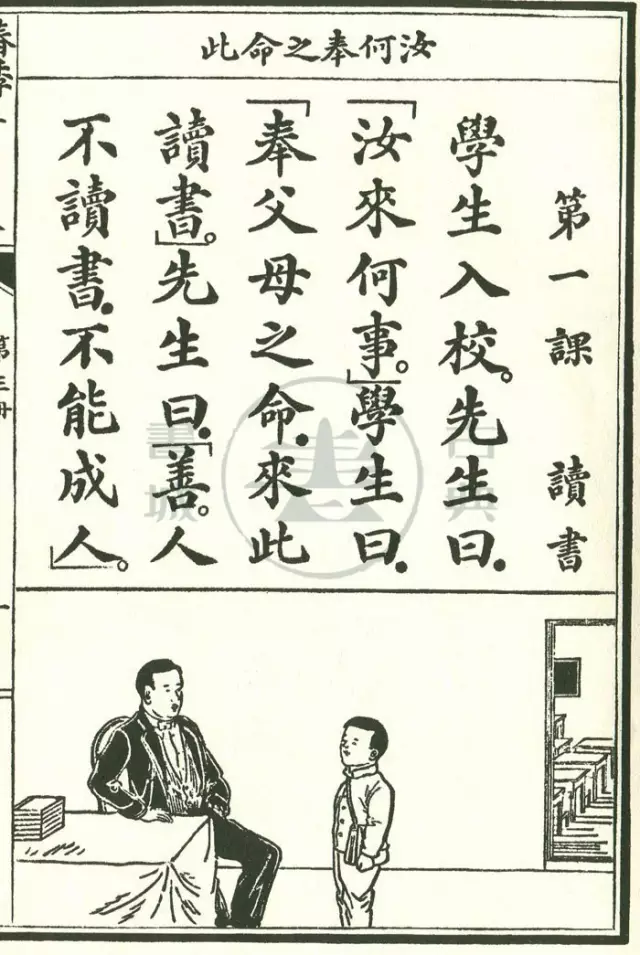 汝何奉之命此
第一課 讀書
學生入校。先生曰．
「汝來何事。」學生曰．
「奉父母之命．來此
讀書。」先生曰．「善。人
不讀書．不能成人。」
第三冊
古典書城